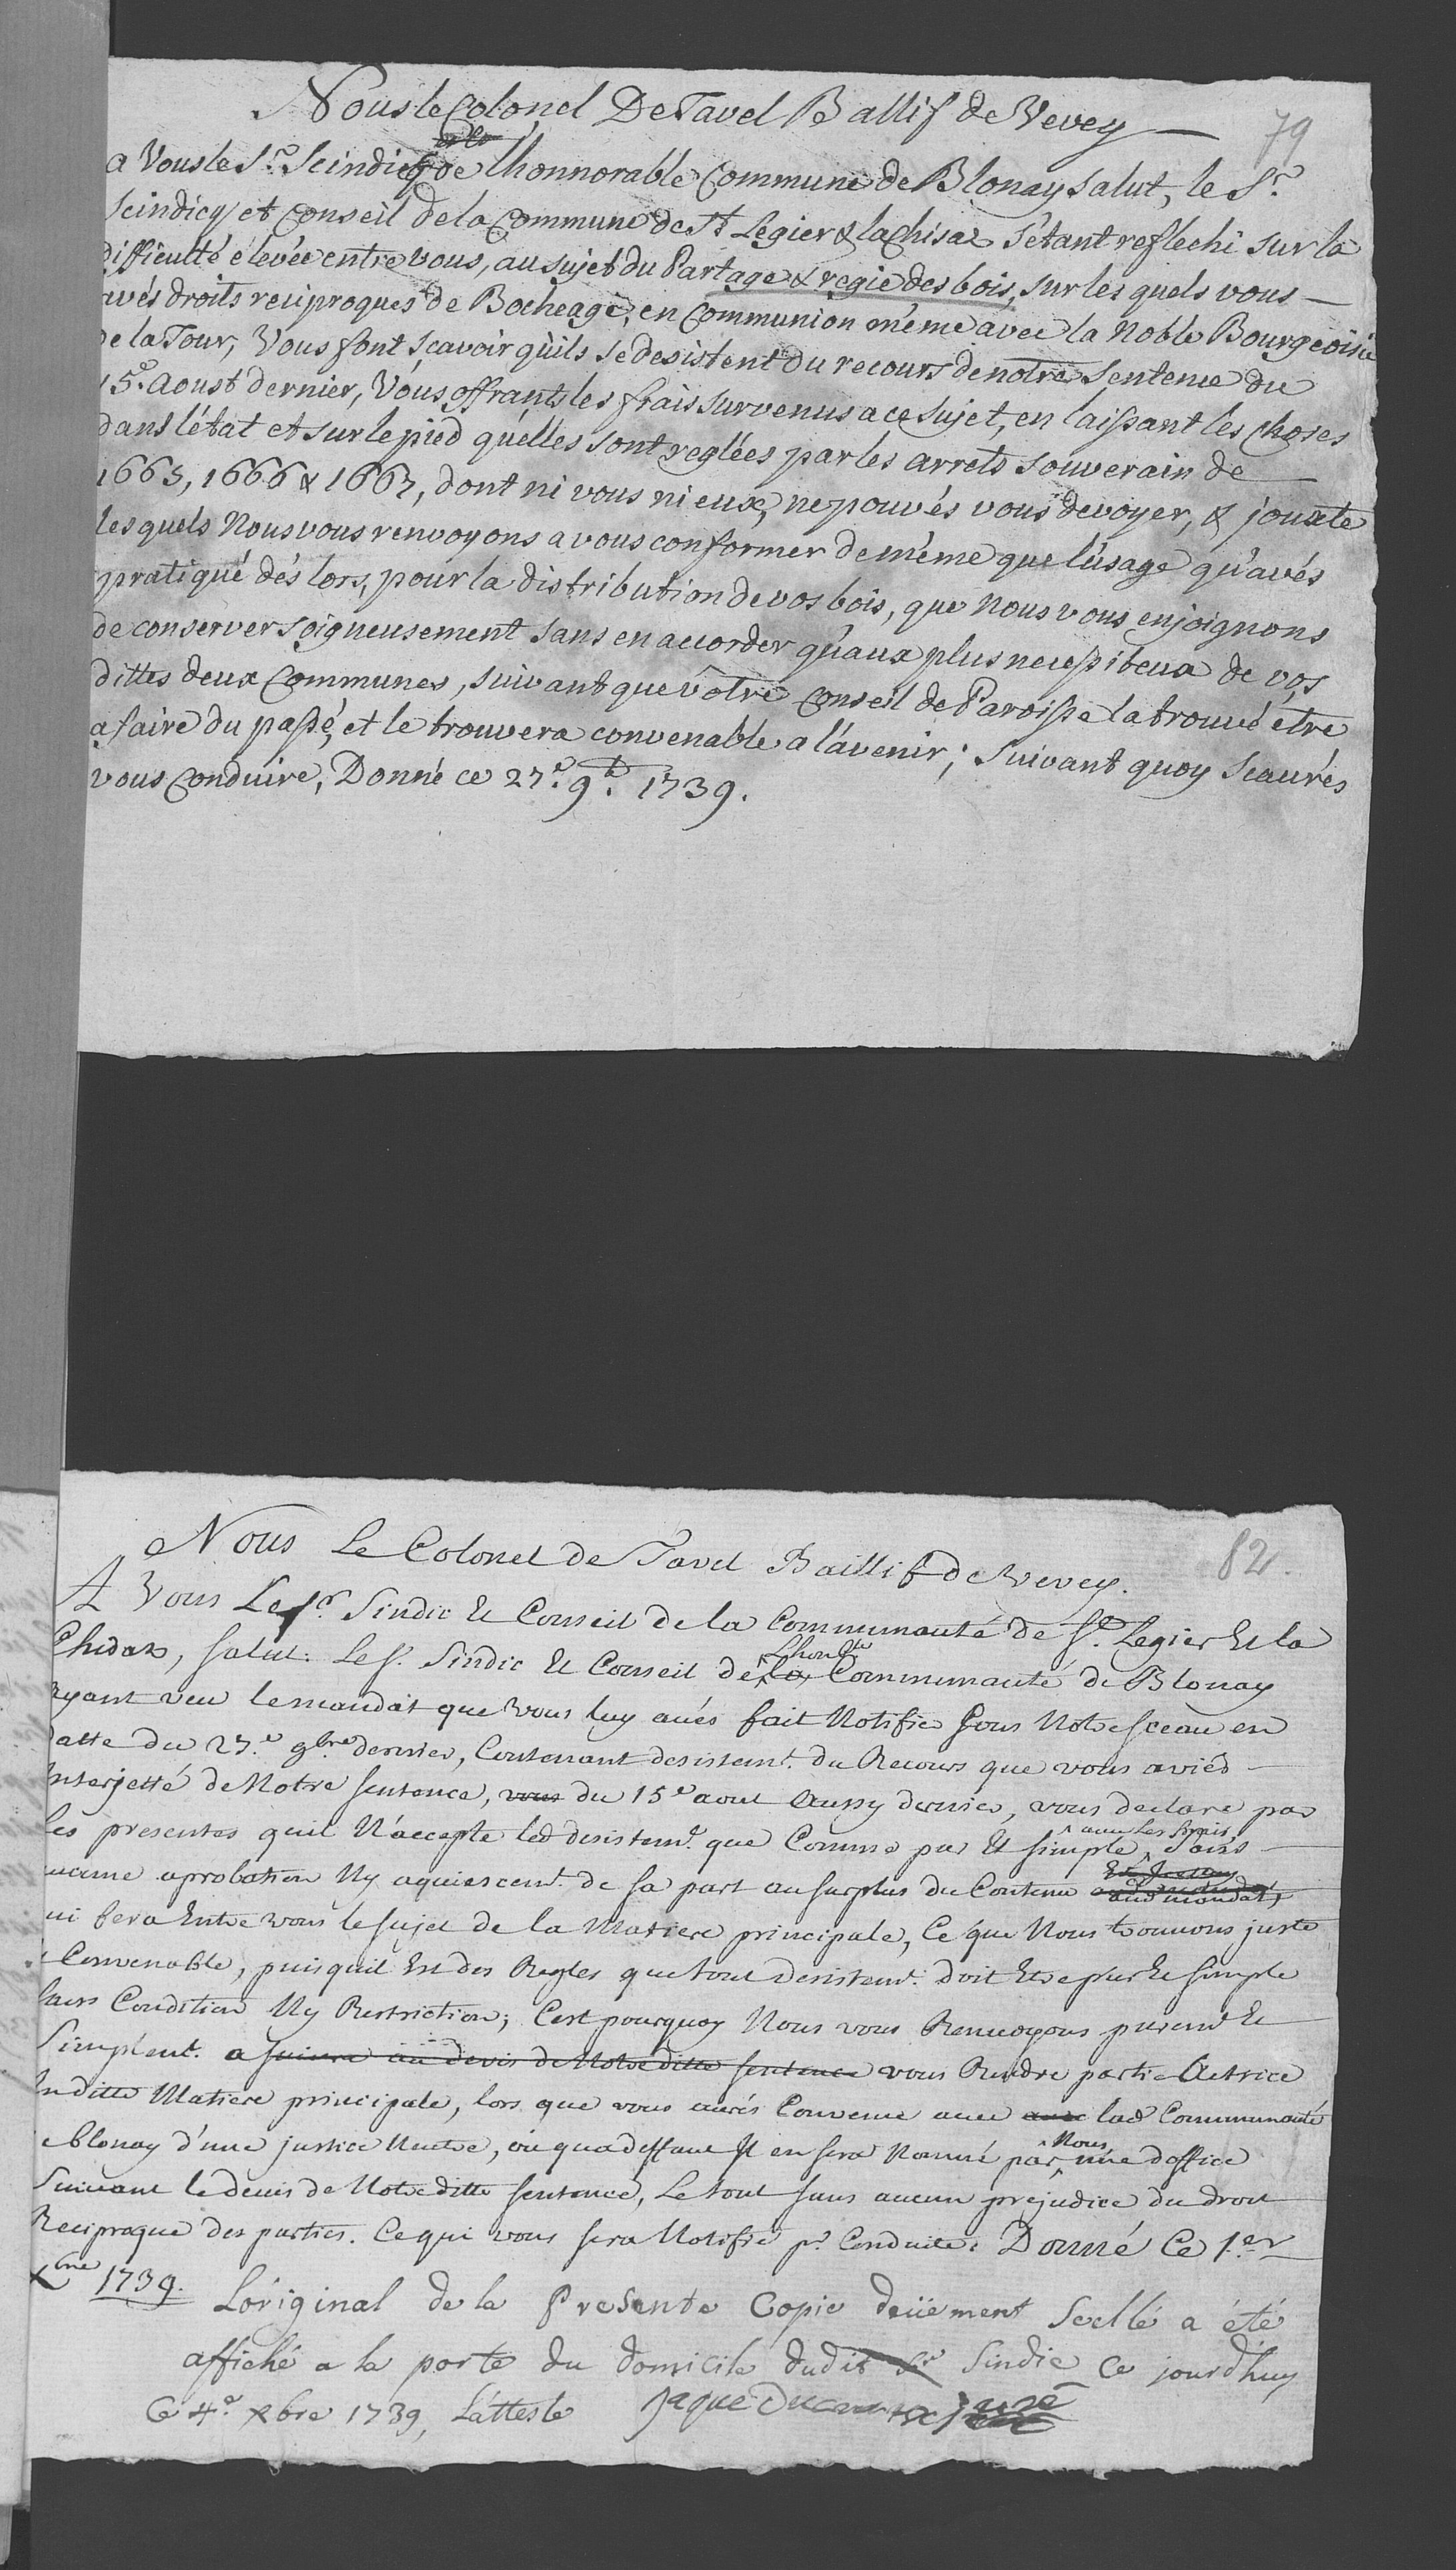 Nous le Colonel De Tavel Ballif de Vevey
79
a Vous le Sr. Scindicq de lhonnorable Commune de Blonay salut, le Sr.
Scindicq et Conseil de la Commune de St. Legier & la Chisaz s'étant reflechi sur la
difficulté elevée entre vous, au sujet du Partage & regie des bois, sur les quels vous
avés droits reciproques de Bocheage, en Communion même avec la Noble Bourgeoisie
de la Tour, Vous font scavoir qu'ils se desistent du recours de notre Sentence du
15e. Aoust dernier, Vous offrants les frais survenus a ce sujet, en laissant les choses
dans l'état et sur le pied qu'elles sont reglées par les arrets souverain de
1665, 1666 & 1667, dont ni vous ni eux, ne pouvés vous devoyer, & jouxte
les quels Nous vous renvoyons a vous conformer de même que l'usage qu'avés
pratiqué dés lors, pour la distribution de vos bois, que Nous vous enjoignons
de conserver soigneusement sans en accorder qu'aux plus necessiteux de vos
dittes deux Communes, suivant que vôtre Conseil de Paroisse la trouvé être
a faire du passé, et le trouvera convenable a l'avenir; Suivant quoy scaurés
vous conduire, Donné ce 27e. 9bre. 1739.
Nous Le Colonel de Tavel Baillif de Vevey.
82.
A Vous Le Sr. Sindic Et Conseil de la Communauté de St. Legier Et la
Chisaz, salut. Le Sr. Sindic Et Conseil de Lhonble la Communauté de Blonay
ayant veu le mandat que vous luy avés fait Notifier sous Notre sceau en
datte du 27.e 9bre dernier, Contenant desistemt. du Recours que vous aviés
Interjetté de Notre sentence, vous du 15e aout Aussy dernier, vous declare par
les presentes quil N'accepte led desistemt. que Comme pur Et simple, avec les frais, sans
aucune aprobation Ny aquiescemt. de sa part au surplus du Contenu aud mandat,
qui sera Entre vous le sujet de la Matiere principale, Ce que Nous trouvons juste
& Convenable, puisquil Est des Regles que tout desistemt. doit Etre pur Et simple
sans Condition Ny Restriction; Cest pourquoy Nous vous Renvoyons puremt Et
Simplemt. a suivre au devis de Notre ditte sentence vous Rendre partie Actrice
En ditte Matiere principale, lors que vous aurés Convenu avec avec lad Communauté
de blonay d'une justice Neutre, ou qua deffaut Il en sera Nommé par Nous une d'office
Suivant le devis de Notre ditte sentence, Le tout sans aucun prejudice du droit
Reciproque des parties. Ce qui vous sera Notifié pr. Conduite. Donné Ce 1.er
Xbre 1739.
L'original de la Presente Copie deüement Scellé a été
affiché a la porte du domicile dudit Sr Sindic Ce jourd'huy
Ce 4e. xbre 1739, L'atteste Jaque